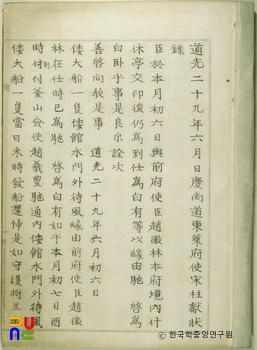 道光二十九年六月日慶尚道東萊府使宋柱獻狀
錄
臣於本月初六日與前府使臣趙徽林本府境內什
休亭交印後仍爲到任爲白有等以緣由馳 啓爲
白臥乎事是良尒詮次
善啓向教是事 道光二十九年六月初六日
倭大船一隻倭館水門外待風緣由前府使臣趙徽
林在任時已爲馳 啓爲白有如乎本月初七日酉
時到付釜山僉使趙義豊馳通內倭館水門外待風
倭大船一隻當日未時發船還歸是如守護將三
ⓒ 한국학중앙연구원